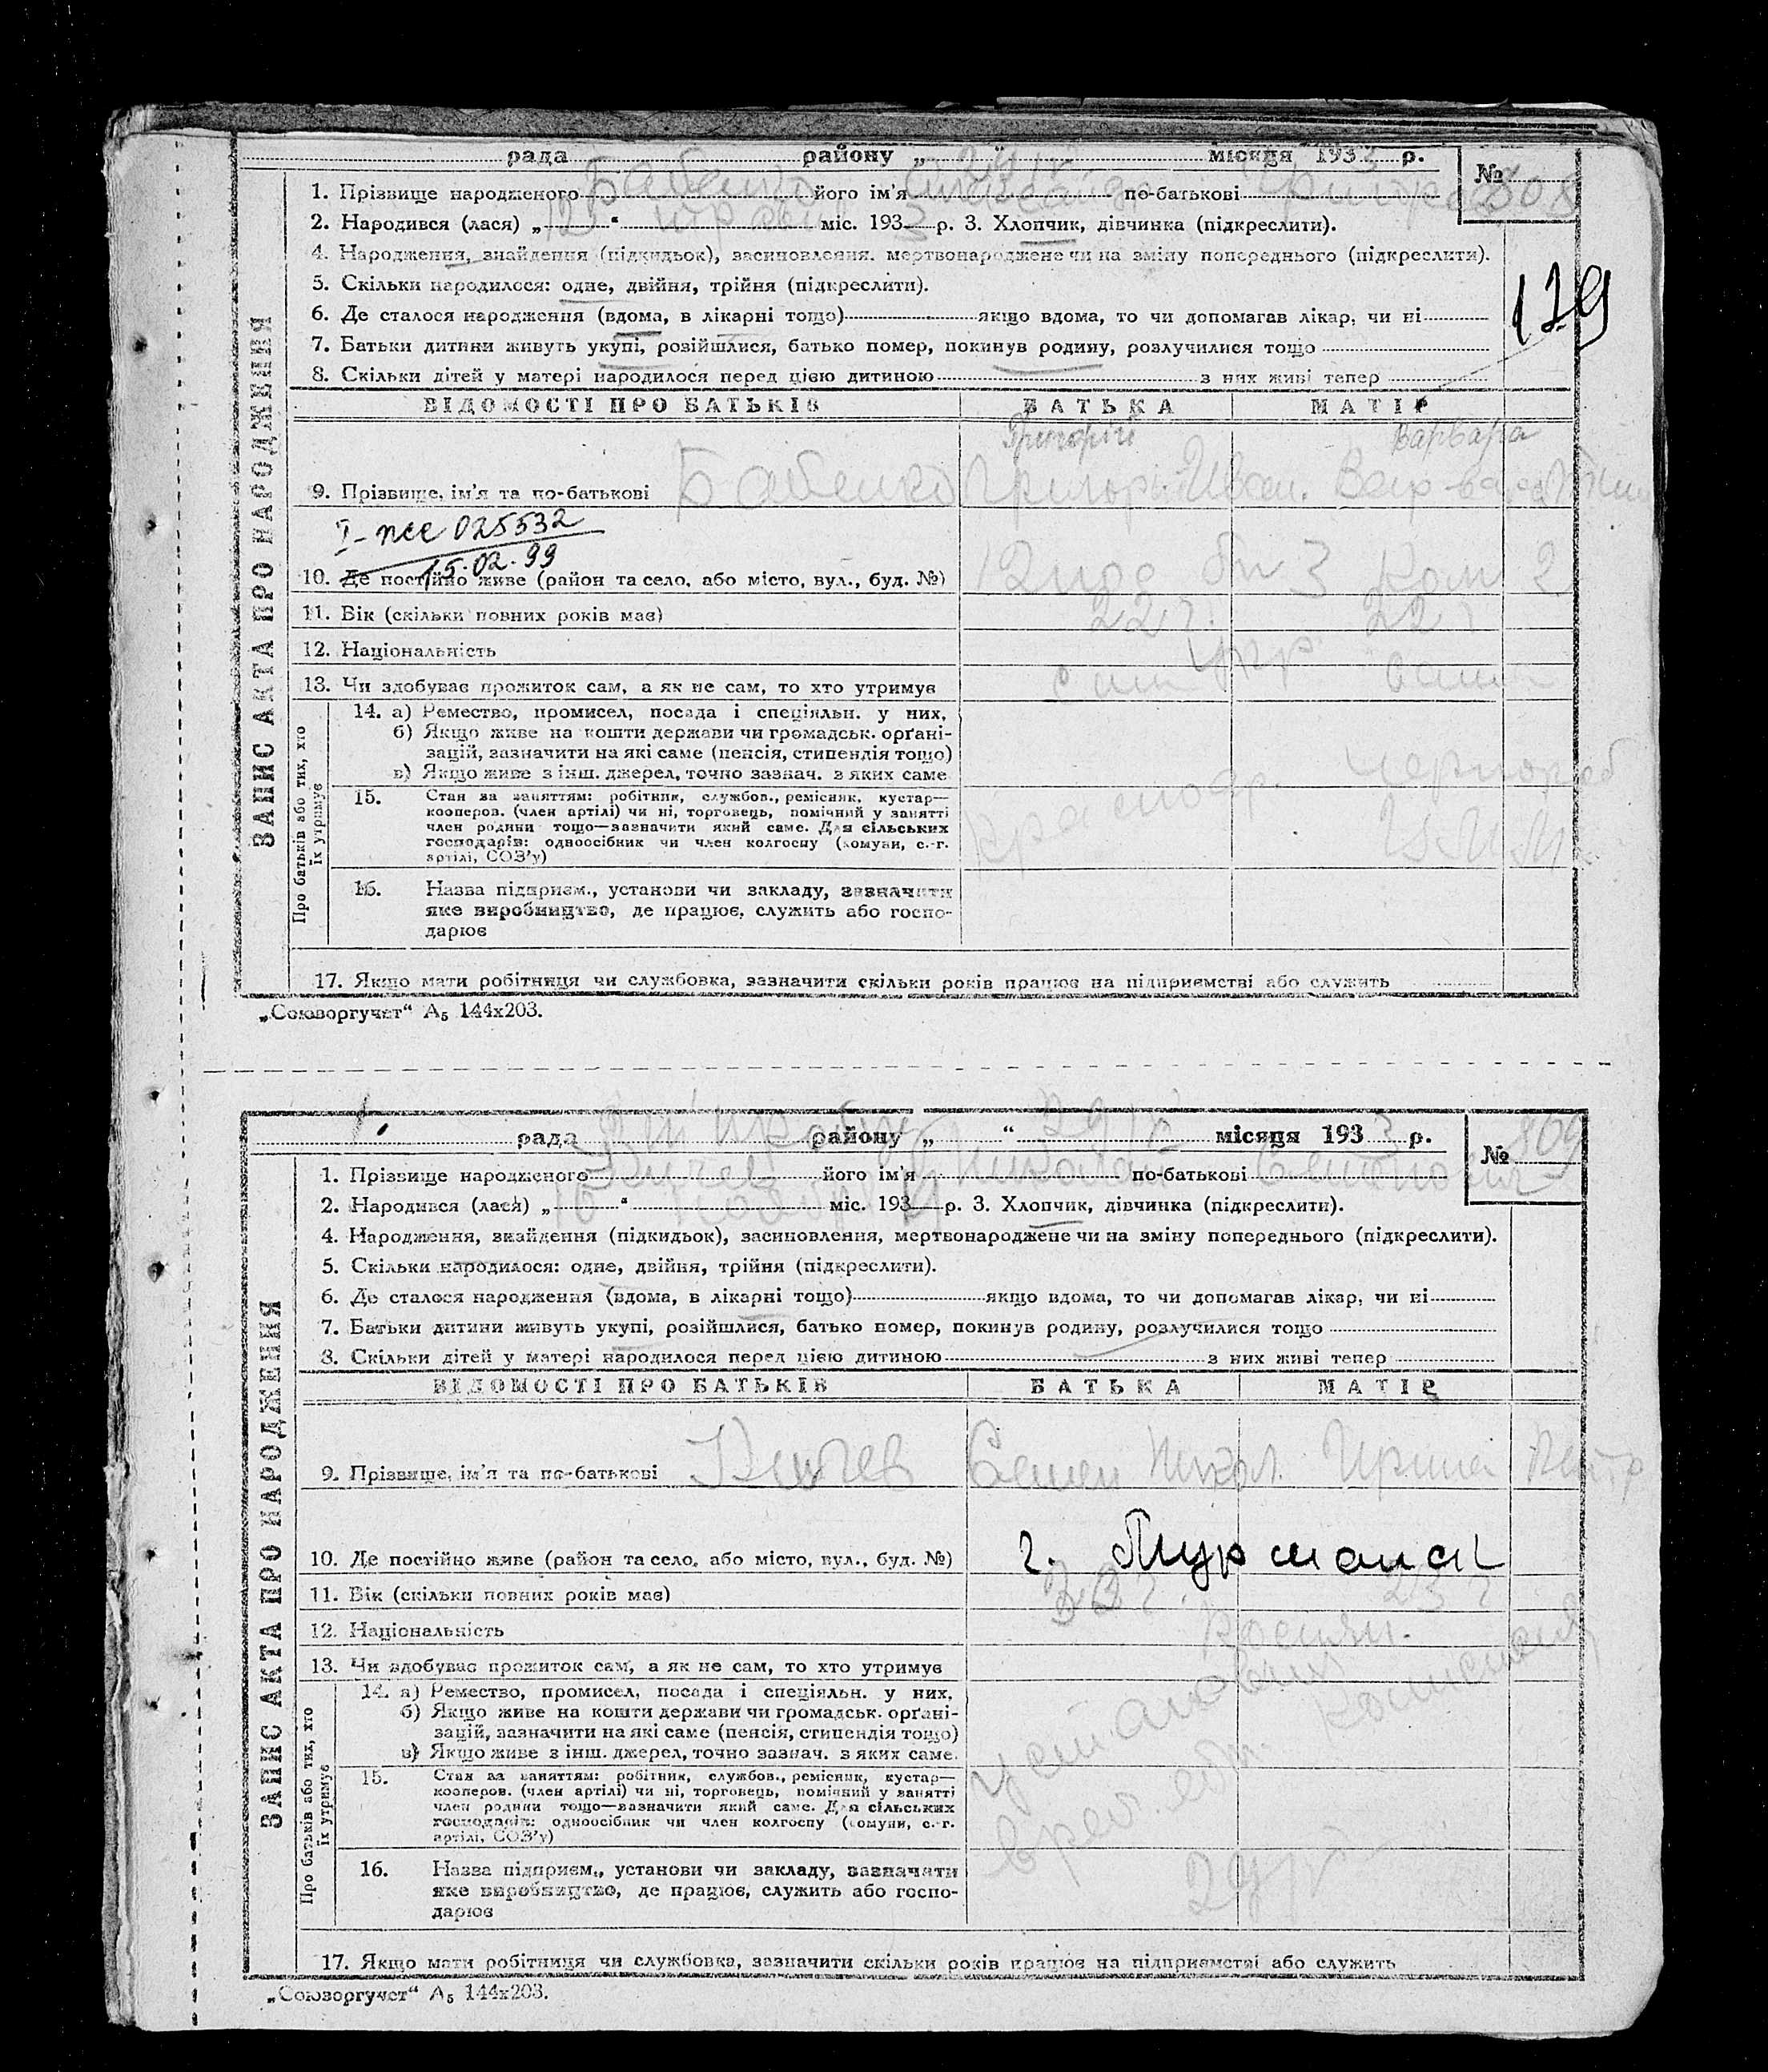 рада району „ “ 29 IV місяця 1933 р.
№ 808
1. Прізвище народженого Бабенко його ім'я по-батькові
2. Народився (лася) „ 12 “ міс. 1933 р. 3. Хлопчик, дівчинка (підкреслити).
4. Народження, знайдення (підкидьок), засиновлення. мертвонароджене чи на зміну попереднього (підкреслити).
5. Скільки народилося: одне, двійня, трійня (підкреслити).
129
6. Де сталося народження (вдома, в лікарні тощо) якщо вдома, то чи допомагав лікар, чи ні
7. Батьки дитини живуть укупі, розійшлися, батько помер, покинув родину, розлучилися тощо
8. Скільки дітей у матері народилося перед цією дитиною з них живі тепер
ЗАПИС АКТА ПРО НАРОДЖЕННЯ
ВІДОМОСТІ ПРО БАТЬКІВ БАТЬКА МАТІР
Григорій Варвара
9. Прізвище, ім'я та по-батькові Бабенко Григорі Иван. Варвара
I-пее 025532
15.02.99
10. Де постійно живе (район та село, або місто, вул., буд. №) 3 Ком 2
11. Вік (скільки повних років має) 22 г. 22 г
12. Національність Укр
13. Чи здобуває прожиток сам, а як не сам, то хто утримує
Про батьків або тих, хто їх утримує
14. а) Ремество, промисел, посада і спеціяльн. у них.
б) Якщо живе на кошти держави чи громадськ. орґані-
зацій, зазначити на які саме (пенсія, стипендія тощо)
в) Якщо живе з інш. джерел, точно зазнач. з яких саме
15. Стан за заняттям: робітник, службов., ремісник, кустар—
кооперов. (член артілі) чи ні, торговець, помічний у занятті
член родини тощо—зазначити який саме. Для сільських
господарів: одноосібник чи член колгоспу (комуни, с.-г.
артілі, СОЗ'у)
16. Назва підприєм., установи чи закладу, зазначити
яке виробництво, де працює, служить або госпо-
дарює
17. Якщо мати робітниця чи службовка, зазначити скільки років працює на підприємстві або служить
„Союзоргучет“ А₅ 144х203.
рада району „ “ 29 IV місяця 1933 р.
№ 809
1. Прізвище народженого його ім'я Николай по-батькові Семенович
2. Народився (лася) „ “ міс. 193 р. 3. Хлопчик, дівчинка (підкреслити).
4. Народження, знайдення (підкидьок), засиновлення, мертвонароджене чи на зміну попереднього (підкреслити).
5. Скільки народилося: одне, двійня, трійня (підкреслити).
6. Де сталося народження (вдома, в лікарні тощо) якщо вдома, то чи допомагав лікар, чи ні
7. Батьки дитини живуть укупі, розійшлися, батько помер, покинув родину, розлучилися тощо
8. Скільки дітей у матері народилося перед цією дитиною з них живі тепер
ЗАПИС АКТА ПРО НАРОДЖЕННЯ
ВІДОМОСТІ ПРО БАТЬКІВ БАТЬКА МАТІР
9. Прізвище, ім'я та по-батькові Семен Никол. Ирина Петр
10. Де постійно живе (район та село, або місто, вул., буд. №) г. Мурманск
11. Вік (скільки повних років має) 33 г. 23 г
12. Національність Росіян.
13. Чи здобуває прожиток сам, а як не сам, то хто утримує
Про батьків або тих, хто їх утримує
14. а) Ремество, промисел, посада і спеціяльн. у них.
б) Якщо живе на кошти держави чи громадськ. орґані-
зацій, зазначити на які саме (пенсія, стипендія тощо)
в) Якщо живе з інш. джерел, точно зазнач. з яких саме.
15. Стан за заняттям: робітник, службов., ремісник, кустар—
кооперов. (член артілі) чи ні, торговець, помічний у занятті
член родини тощо—зазначити який саме. Для сільських
господарів: одноосібник чи член колгоспу (комуни, с.-г.
артілі, СОЗ'у)
16. Назва підприєм., установи чи закладу, зазначити
яке виробництво, де працює, служить або госпо-
дарює
17. Якщо мати робітниця чи службовка, зазначити скільки років працює на підприємстві або служить
„Союзоргучет“ А₅ 144х203.